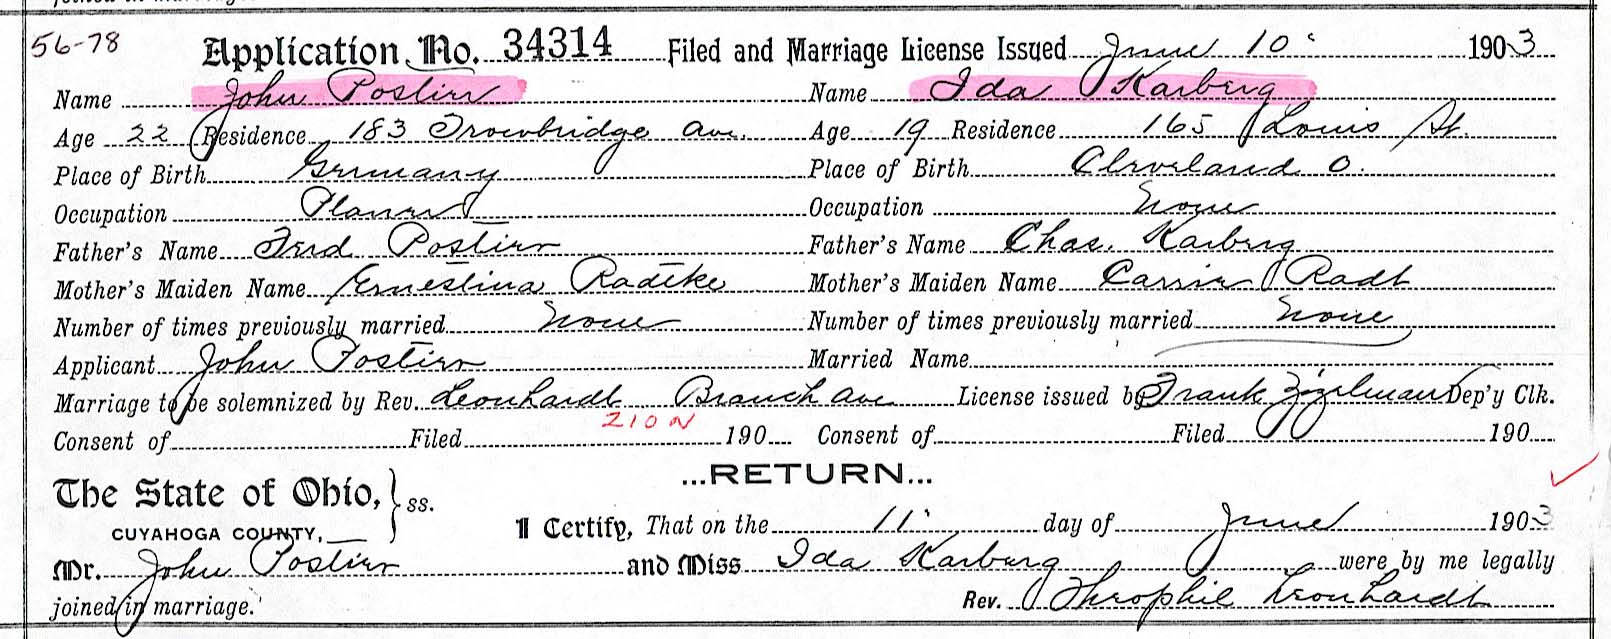 56-78
Application No. 34314 Filed and Marriage License Issued June 10 1903
Name John Postier Name Ida Karberg
Age 22 Residence 183 Trowbridge Ave. Age 19 Residence 165 Louis St.
Place of Birth Germany Place of Birth Cleveland O.
Occupation Occupation None
Father's Name Ferd Postier Father's Name Chas. Karberg
Mother's Maiden Name Ernestina Radtke Mother's Maiden Name Carrie Radt
Number of times previously married None Number of times previously married None
Applicant John Postier Married Name
Marriage to be solemnized by Rev. Leonhardt Branch Ave License issued by Frank Dep'y Clk.
ZION
Consent of Filed 190 Consent of Filed 190
...RETURN...
The State of Ohio, } ss.
CUYAHOGA COUNTY,
I Certify, That on the 11 day of June 1903
Mr. John Postier and Miss Ida Karberg were by me legally
joined in marriage. Rev. Theophil Leonhardt